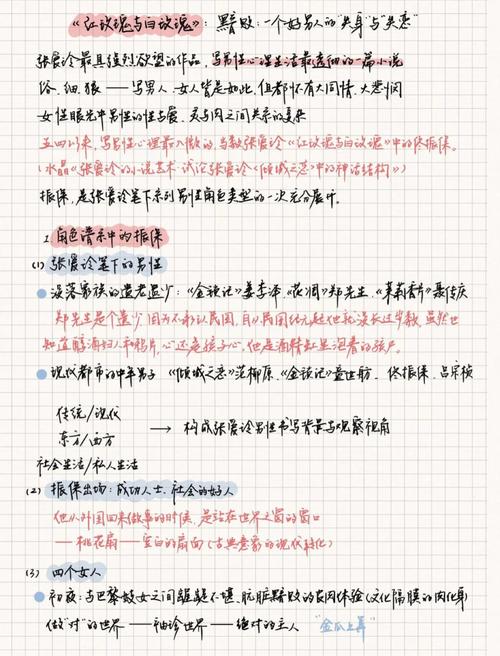 《红玫瑰与白玫瑰》：黯败：一个好男人的"失身"与"失恋"
张爱玲最具强烈欲望的作品，写男性心理生活最透彻的一篇小说
俗、细、狠——写男人、女人皆是如此，但都怀有大同情，大悲悯
女性眼光中男性的性与爱，灵与肉之间关系的复杂
五四以来，写男性心理最入微的，当数张爱玲《红玫瑰与白玫瑰》中的佟振保。
（水晶《张爱玲的小说艺术·试论张爱玲〈倾城之恋〉中的神话结构》）
振保，是张爱玲笔下系列男性角色类型的一次充分展开。
1. 角色谱系中的振保
（1）张爱玲笔下的男性
没落家族的遗老遗少：《金锁记》姜季泽、《花凋》郑先生、《茉莉香片》聂传庆
郑先生是个遗少，因为不承认民国，自从民国纪元起他就没长过岁数。虽然也
知道醇酒妇人和鸦片，心还是孩子心。他是酒精缸里泡着的孩尸。
现代都市的中年男子 《倾城之恋》范柳原、《金锁记》童世舫、佟振保、吕宗桢
传统/现代
东方/西方 → 构成张爱玲男性书写背景与观察视角
社会生活/私人生活
（2）振保出场：成功人士、社会的好人
他从外国回来做事的时候，是站在世界之窗的窗口
——桃花扇——空白的扇面（古典意象的现代转化）
（3）四个女人
初夜：与巴黎妓女之间龌龊不堪、肮脏黯败的
做"对"的世界——袖珍世界——绝对的主人